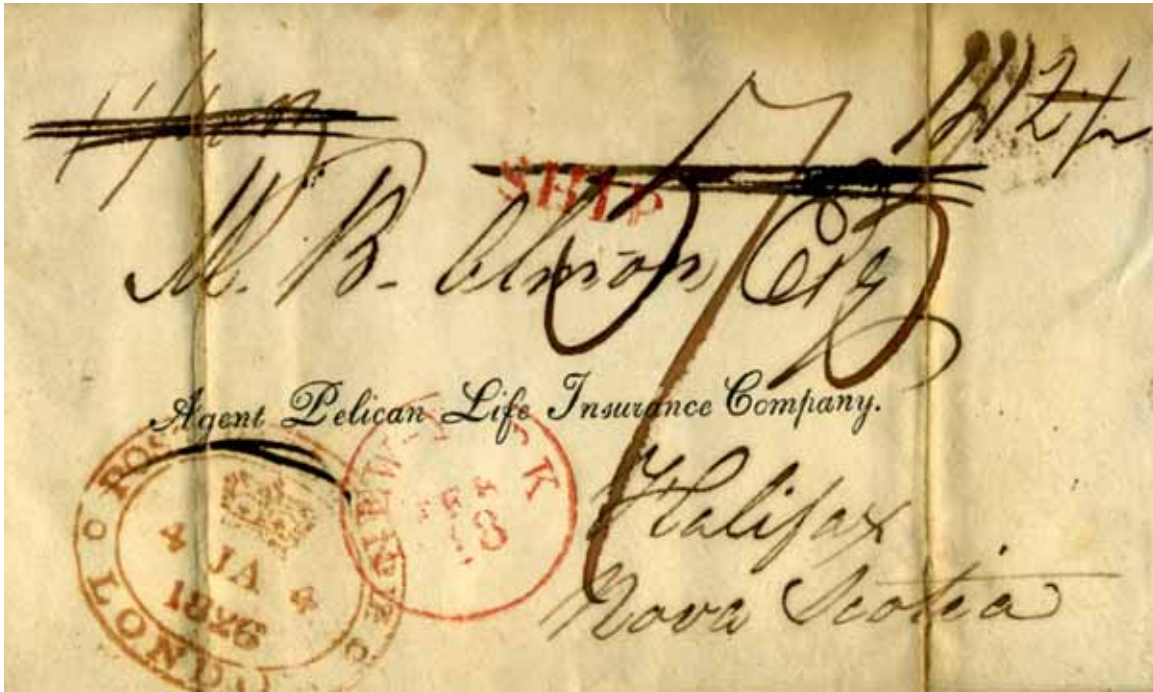 SHIP
M. B. Almon Esq
Agent Pelican Life Insurance Company.
Halifax
Nova Scotia
NEW YORK
FEB
18
POST
LONDON
4 JA 4
1826